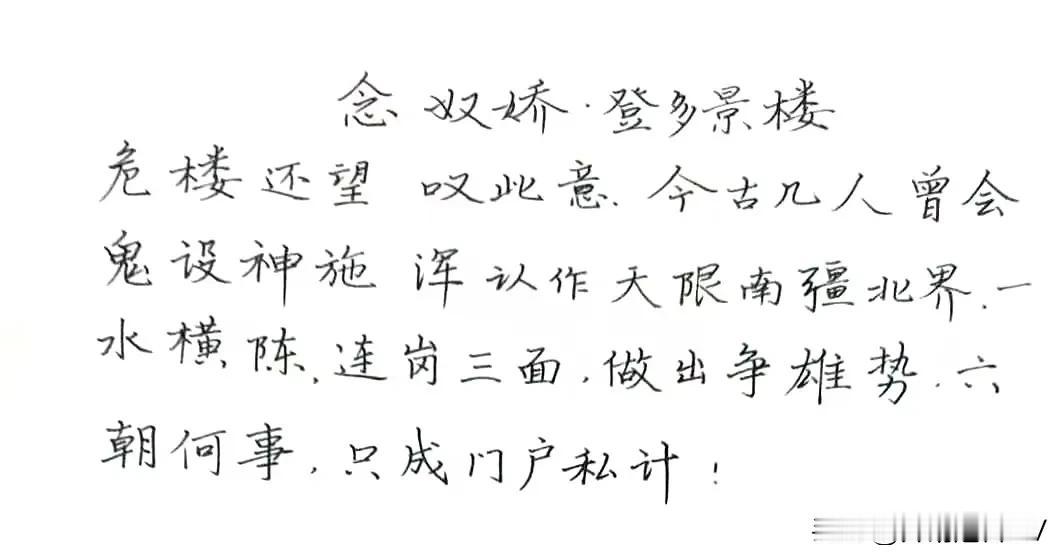 念奴娇·登多景楼
危楼还望 叹此意、今古几人曾会
鬼设神施 浑认作天限南疆北界、一
水横陈、连岗三面,做出争雄势、六
朝何事,只成门户私计!